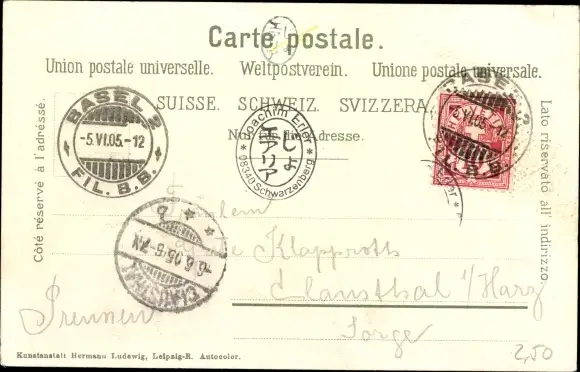 Carte postale.
Union postale universelle. Weltpostverein. Unione postale universale.
SUISSE. SCHWEIZ. SVIZZERA.
Nur für die Adresse.
Côté réservé à l'adrésse.
Lato riservato all' indirizzo.
BASEL 2
-5.VI.05.-12
FIL. B.B.
Joachim Erler
エアリア
しょ
* 08340 Schwarzenberg *
BASEL 2
HELVETIA
CLAUSTHAL
6.6.05.6-7N.
Fräulein
Klapproth
Clausthal i/Harz
Sorge
2,50
Kunstanstalt Hermann Ludewig, Leipzig-R. Autocolor.